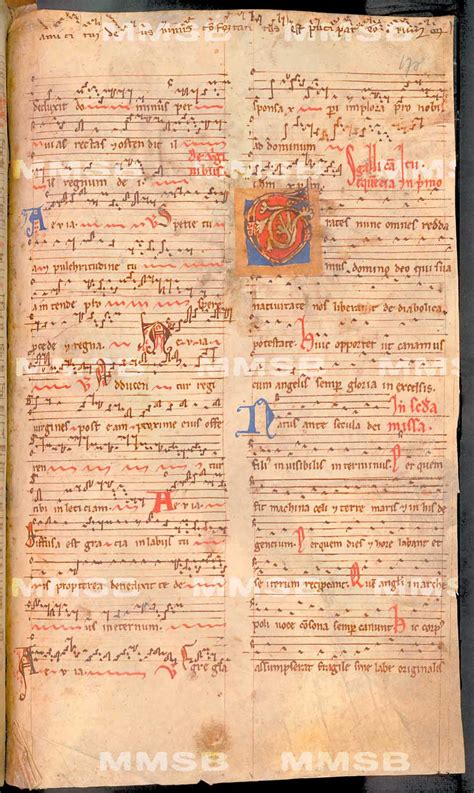 amici tui deus nimis confortatus est principatus eorum
178
deduxit do minus per
uias rectas et ostendit il
De virginibus
li regnum de i
Aeuia. V Specie tu
a et pulchritudine tu
a intende pros pere
procede et regna. Aeuia.
V Adducen tur regi
virgines post eam proxime eius offe
ren
tibi in leticiam. Aeuia.
Diffusa est gracia in labiis tu
is propterea benedixit te de
us in eternum.
Aeuia. Egregia
sponsa x pi implora pro nobis
ad dominum
ihm xpm.
Sequencia in primo
Grates nunc omnes redda
mus domino deo qui sua
natiuitate nos liberauit de diabolica
potestate. Huic oportet ut canamus
cum angelis semper gloria in excelsis.
In secunda missa.
Natus ante secula dei
filius inuisibilis interminus. Per quem
fit machina celi et terre maris et in his de
gentium. Per quem dies et hore labant et
se iterum recipeant. Quem angeli in arche
poli uoce consona semper canunt. Hic corpus
assumpserat fragile sine labe originalis